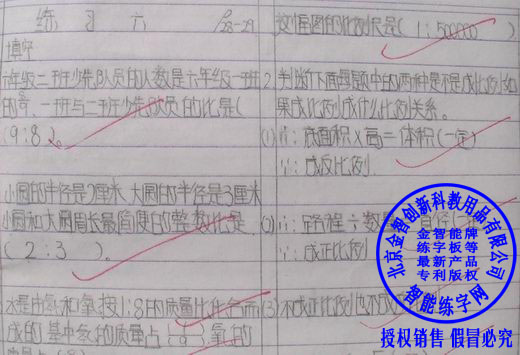 练习六 P28-29
填空
六年级二班少先队员的人数是六年级一班
的8/9,一班与二班少先队员的比是(
9:8)。
小圆的半径是2厘米,大圆的半径是3厘米
小圆和大圆周长最简便的整数比是
(2:3)。
水是由氢和氧按1:8的质量比化合而
成的,其中氢的质量占( ),氧的
这幅图的比例尺是(1:500000)。
2、判断下面每题中的两种量是不是成比例,如
果成比例,成什么比例关系。
(1) ∵底面积×高=体积(一定)
∴成反比例.
(2) ∵路程÷数
∴成正比例
(3)不成正比例也不成
北京金智创新科教用品有限公司
金智能牌
练字板等
最新产品
专利版权
智能练字网
授权销售 假冒必究